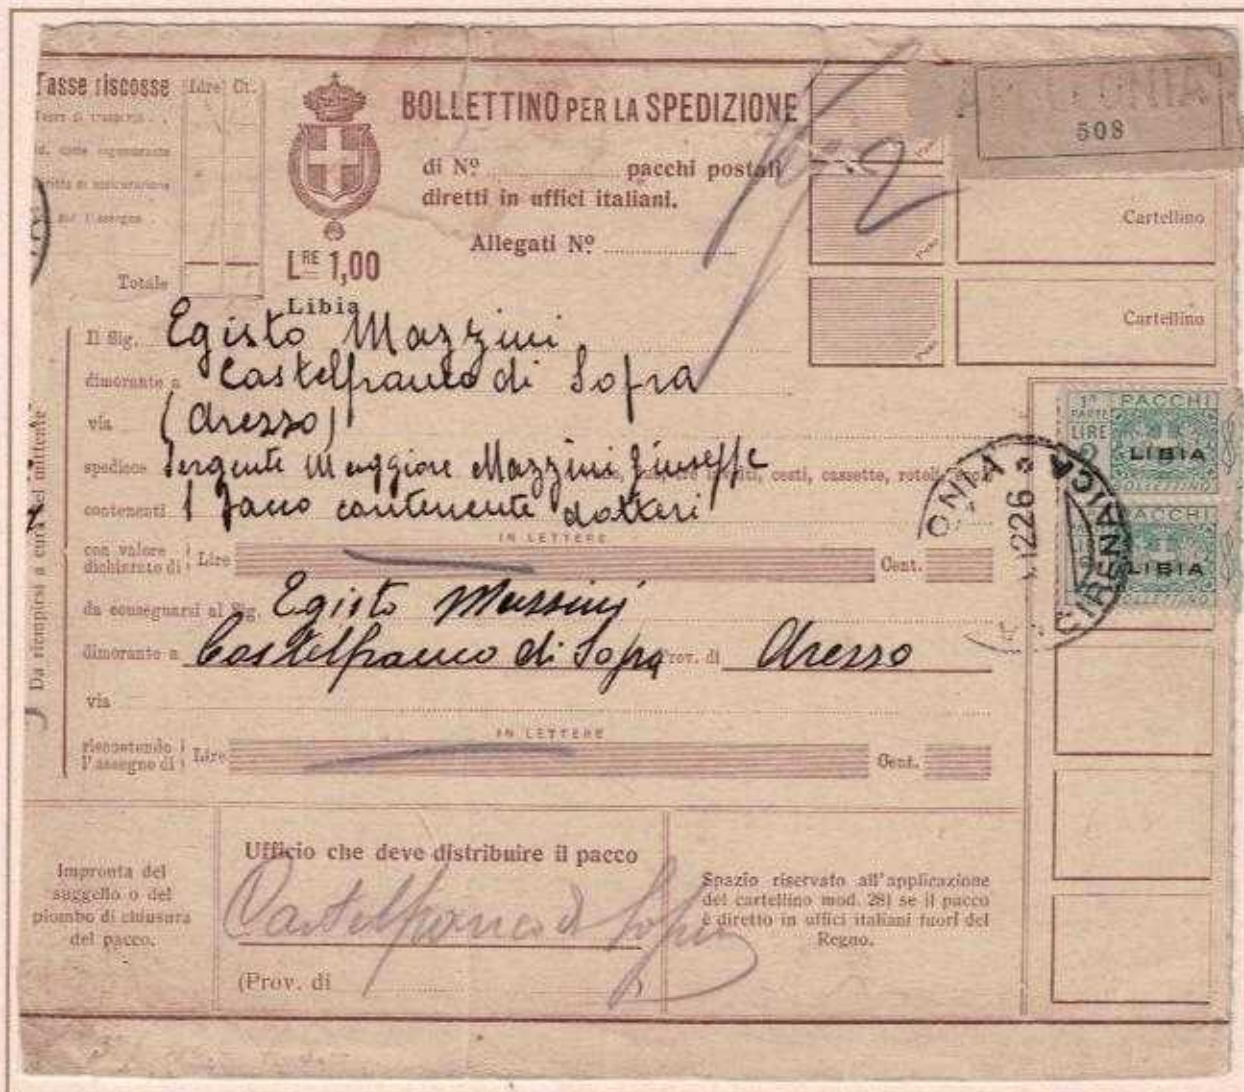 Tasse riscosse
Lire Ct.
Totale
BOLLETTINO PER LA SPEDIZIONE
di Nº pacchi postali
diretti in uffici italiani.
Allegati Nº
LRE 1,00
Libia
508
Cartellino
Cartellino
Da riempirsi a cura del mittente
Il Sig. Egisto Mazzini
dimorante a Castelfranco di Sopra
via (Arezzo)
spedisce Sergente Maggiore Mazzini Giuseppe cesti, cassette,
contenenti 1 pacco contenente datteri
IN LETTERE
con valore dichiarato di Lire Cent.
da consegnarsi al Sig. Egisto Massini
dimorante a Castelfranco di Sopra Prov. di Aresso
via
IN LETTERE
riscuotendo l'assegno di Lire Cent.
1ª PARTE PACCHI
LIRE 2
LIBIA
BOLLETTINO
PACCHI
LIBIA
BOLLETTINO
CIRENAICA
12 26
Impronta del
suggello o del
piombo di chiusura
del pacco.
Ufficio che deve distribuire il pacco
Castelfranco di Sopra
(Prov. di
Spazio riservato all'applicazione
del cartellino mod. 281 se il pacco
è diretto in uffici italiani fuori del
Regno.